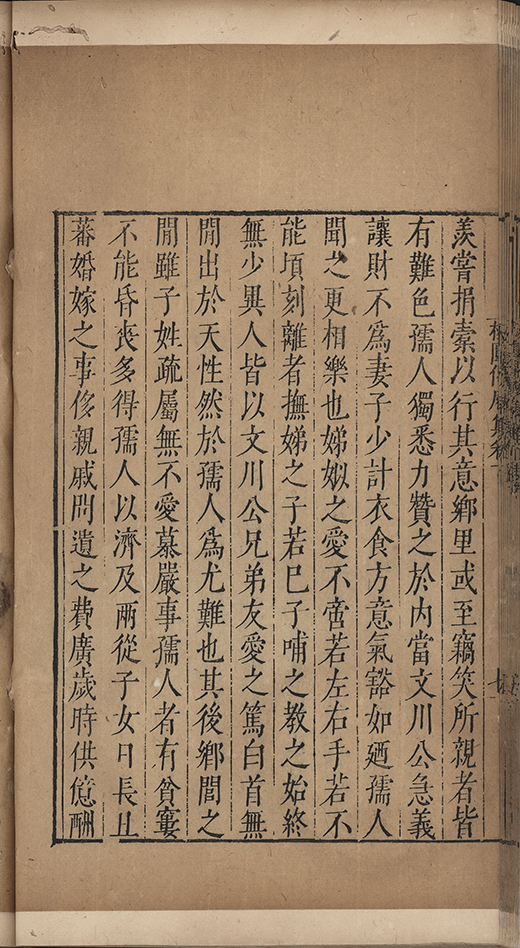 羨嘗捐橐以行其意鄉里或至竊笑所親者皆
有難色孺人獨悉力贊之於內當文川公急義
讓財不爲妻子少計衣食方意氣豁如廼孺人
聞之更相樂也娣姒之愛不啻若左右手若不
能頃刻離者撫娣之子若巳子哺之教之始終
無少異人皆以文川公兄弟友愛之篤白首無
閒出於天性然於孺人爲尤難也其後鄉閭之
閒雖子姓疏屬無不愛慕嚴事孺人者有貧窶
不能昏喪多得孺人以濟及兩從子女日長且
蕃婚嫁之事侈親戚問遺之費廣歲時供億酬